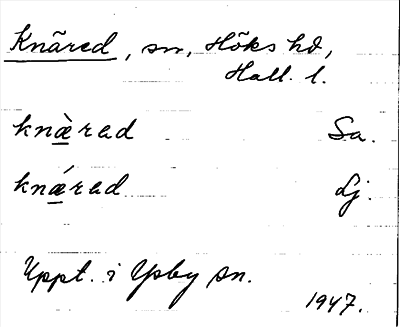 Knäred, sn, Höks hd,
Hall. l.
knæ̀red Sa.
knǽred Lj.
Uppt. i Ysby sn.
1947.